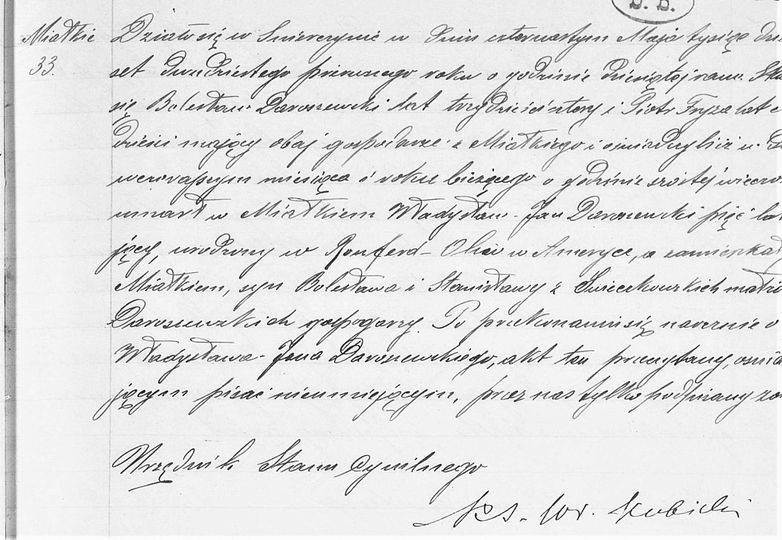 Miałkie
33.
Działo się w Świerczynie w dniu czternastym Maja tysiąc
set dwudziestego pierwszego roku o godzinie dziesiątej rano.
się Bolesław Daroszewski lat trzydzieści cztery i Piotr Fryza lat
dzieści mający obaj gospodarze z Miałkiego i oświadczyli iż w
wczorajszym miesiąca i roku bieżącego o godzinie szóstej wieczo
umarł w Miałkiem Władysław-Jan Daroszewski pięć lat
jący, urodzony w Ohio w Ameryce, a zamieszkały
Miałkiem, syn Bolesława i Stanisławy z Świeczkowskich
Daroszewskich gospodarzy. Po przekonaniu się naocznie o
Władysława-Jana Daroszewskiego, akt ten przeczytany,
jącym pisać nieumiejącym, przez nas tylko podpisany
Urzędnik Stanu Cywilnego
Ks. W. Kubicki